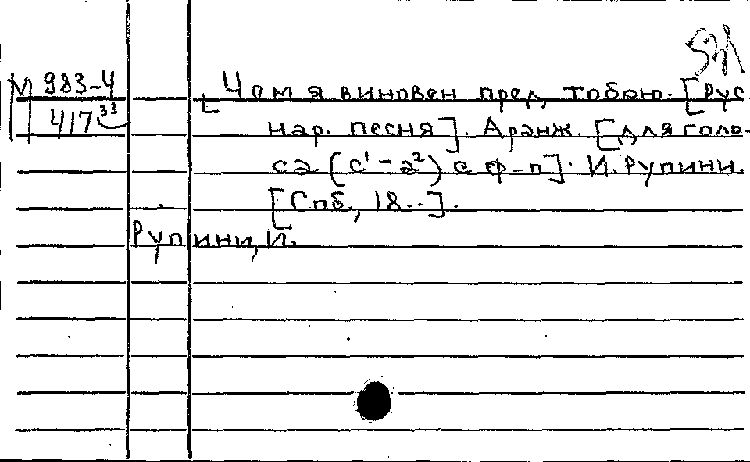 М 983-4
417³³
Чем я виновен пред тобою. [Рус.
нар. песня]. Аранж. [для голо-
са (c¹-a²) с ф-п]. И. Рупини.
[Спб., 18..].
Рупини, И.